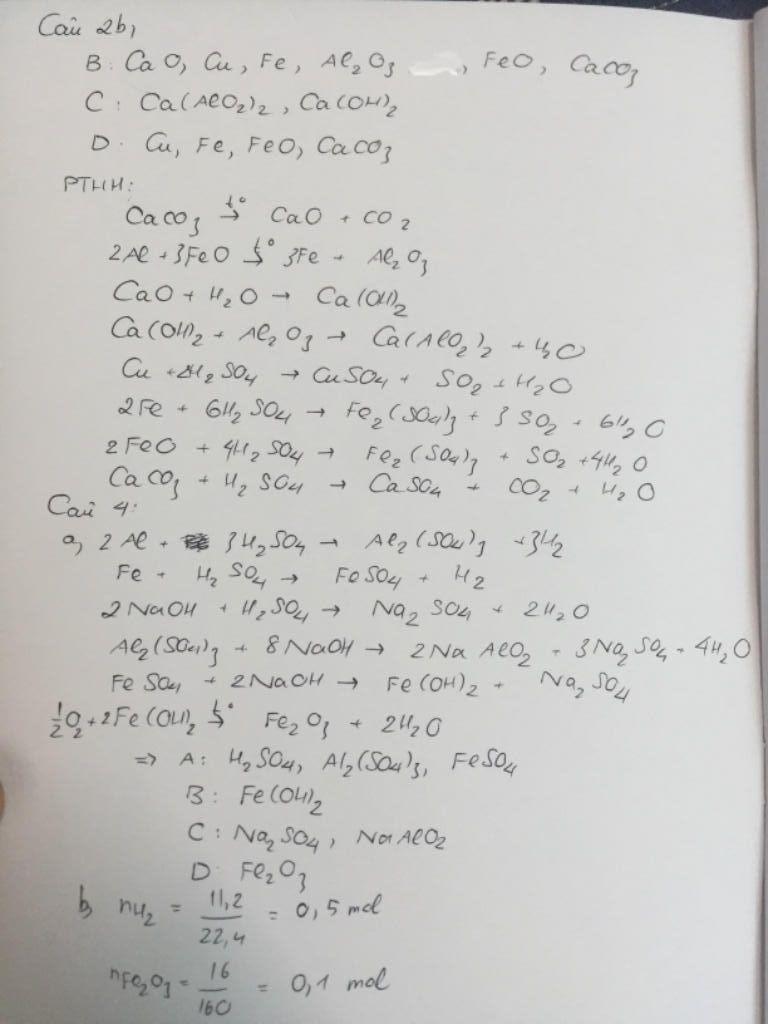 Câu 2b,
B: CaO, Cu, Fe, Al₂O₃ , FeO, CaCO₃
C: Ca(AlO₂)₂, Ca(OH)₂
D: Cu, Fe, FeO, CaCO₃
PTHH:
CaCO₃ t°→ CaO + CO₂
2Al + 3FeO t°→ 3Fe + Al₂O₃
CaO + H₂O → Ca(OH)₂
Ca(OH)₂ + Al₂O₃ → Ca(AlO₂)₂ + H₂O
Cu + 2H₂SO₄ → CuSO₄ + SO₂ + H₂O
2Fe + 6H₂SO₄ → Fe₂(SO₄)₃ + 3SO₂ + 6H₂O
2FeO + 4H₂SO₄ → Fe₂(SO₄)₃ + SO₂ + 4H₂O
CaCO₃ + H₂SO₄ → CaSO₄ + CO₂ + H₂O
Câu 4:
a, 2Al + 3H₂SO₄ → Al₂(SO₄)₃ + 3H₂
Fe + H₂SO₄ → FeSO₄ + H₂
2NaOH + H₂SO₄ → Na₂SO₄ + 2H₂O
Al₂(SO₄)₃ + 8NaOH → 2NaAlO₂ + 3Na₂SO₄ + 4H₂O
FeSO₄ + 2NaOH → Fe(OH)₂ + Na₂SO₄
½O₂ + 2Fe(OH)₂ t°→ Fe₂O₃ + 2H₂O
=> A: H₂SO₄, Al₂(SO₄)₃, FeSO₄
B: Fe(OH)₂
C: Na₂SO₄, NaAlO₂
D: Fe₂O₃
b, nH₂ = 11,2/22,4 = 0,5 mol
nFe₂O₃ = 16/160 = 0,1 mol